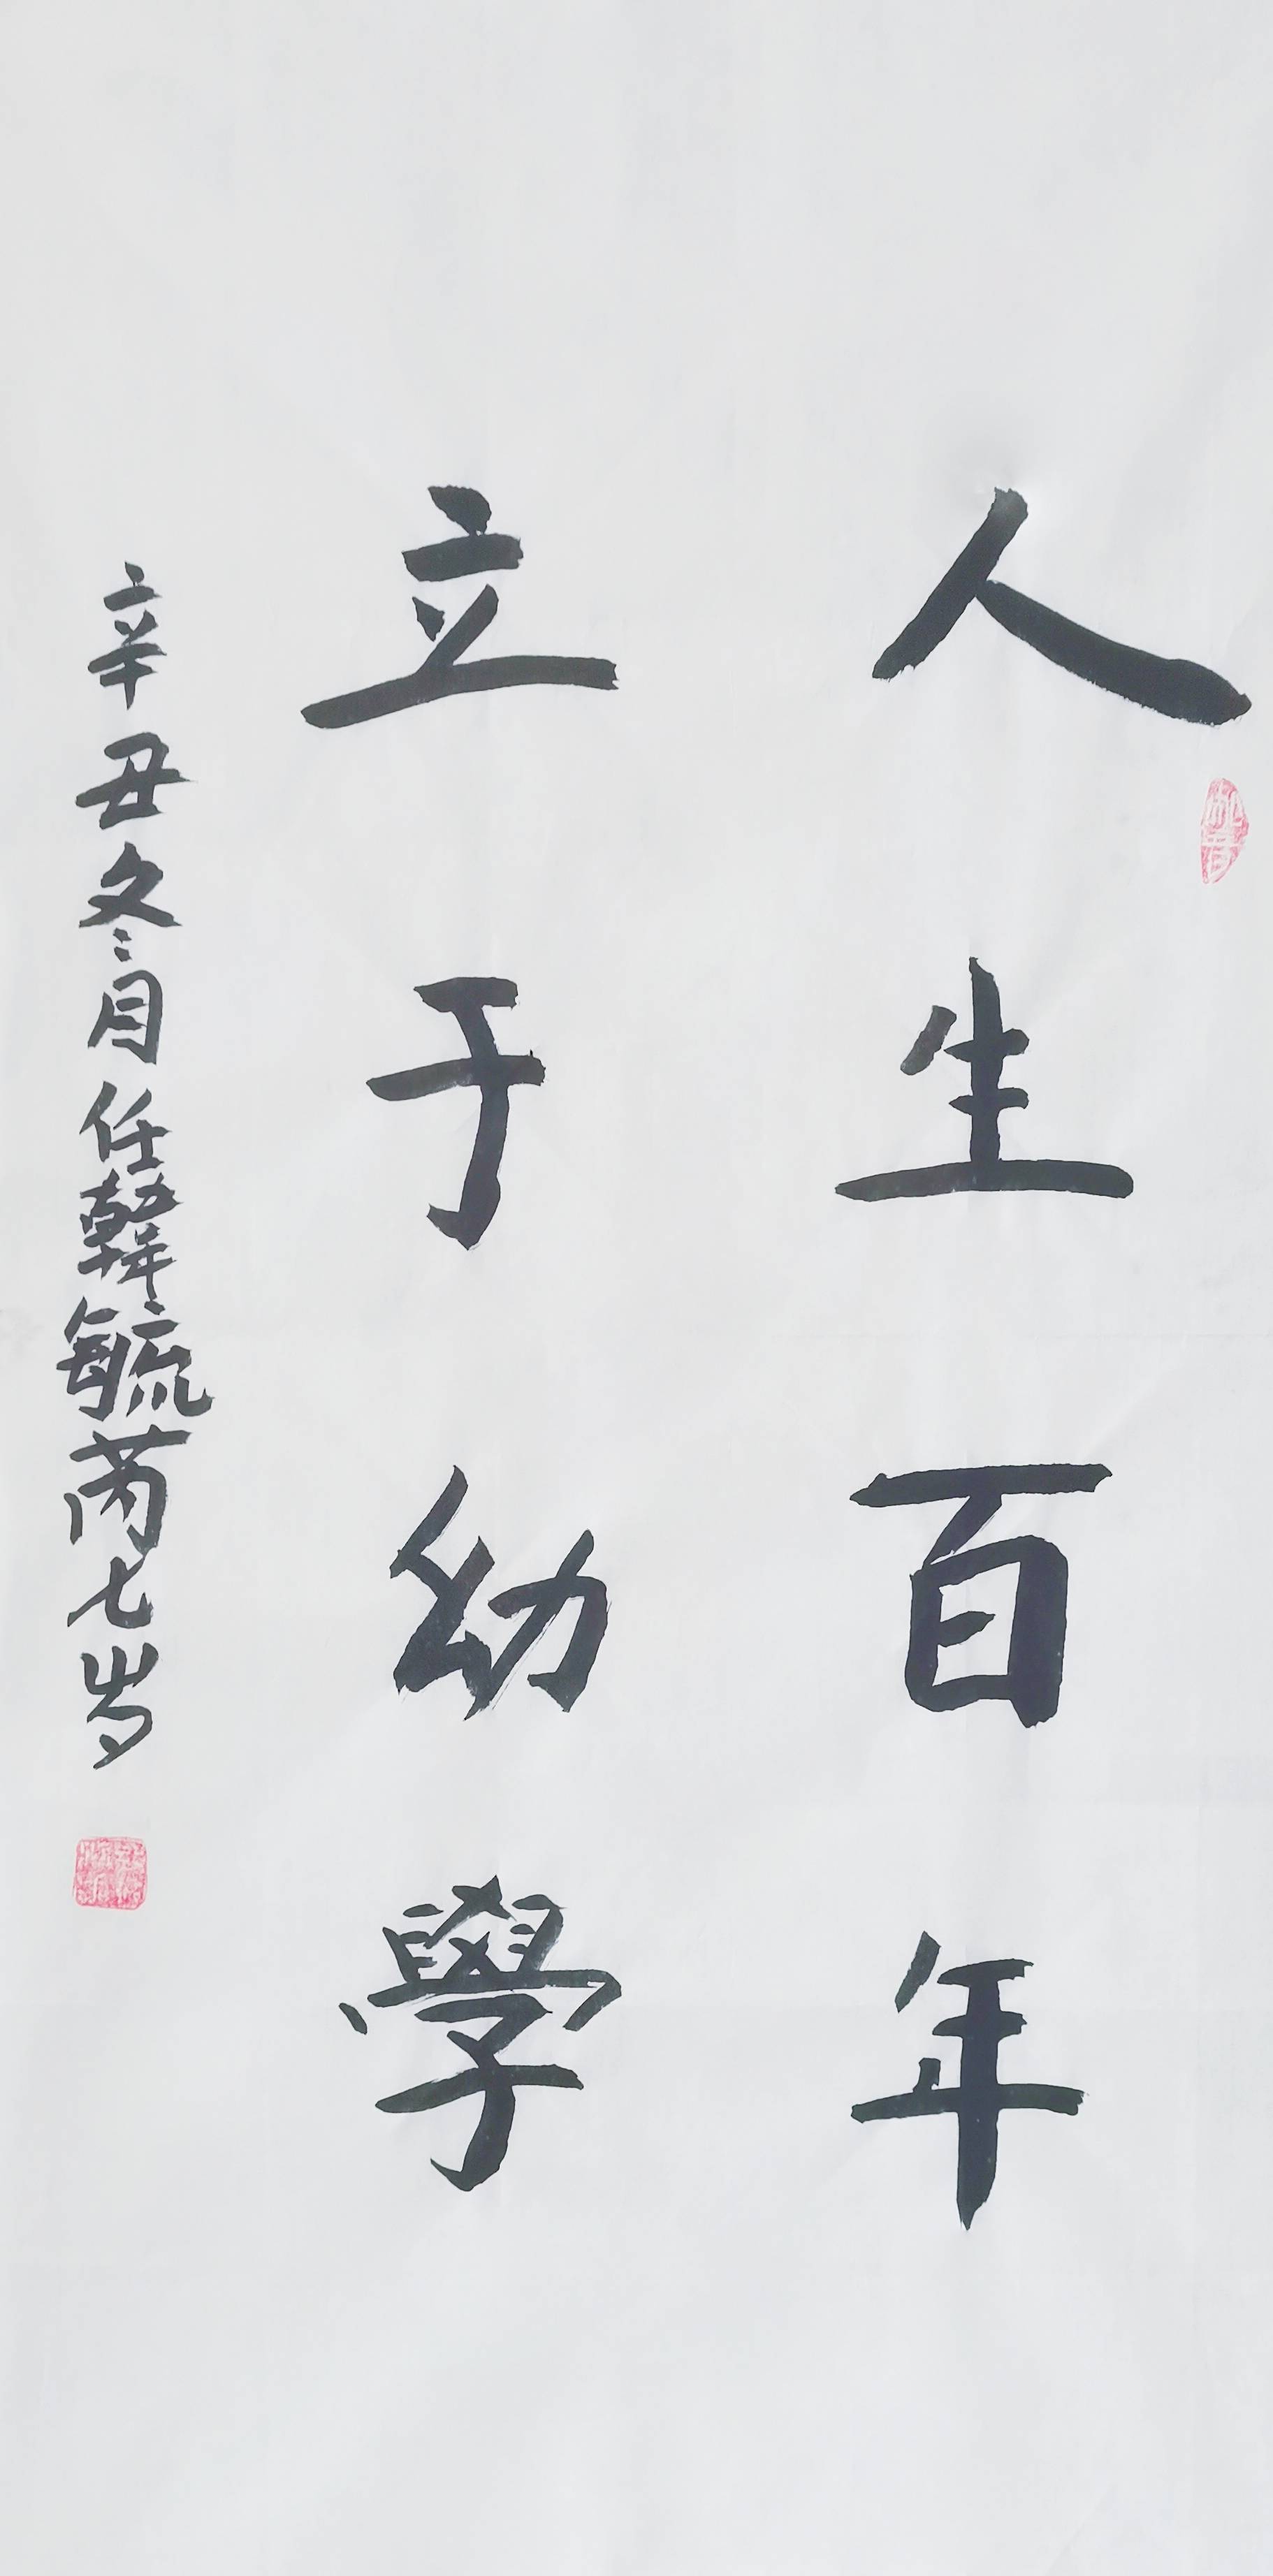 人生百年
立于幼學
辛丑冬月任韓毓芮七岁